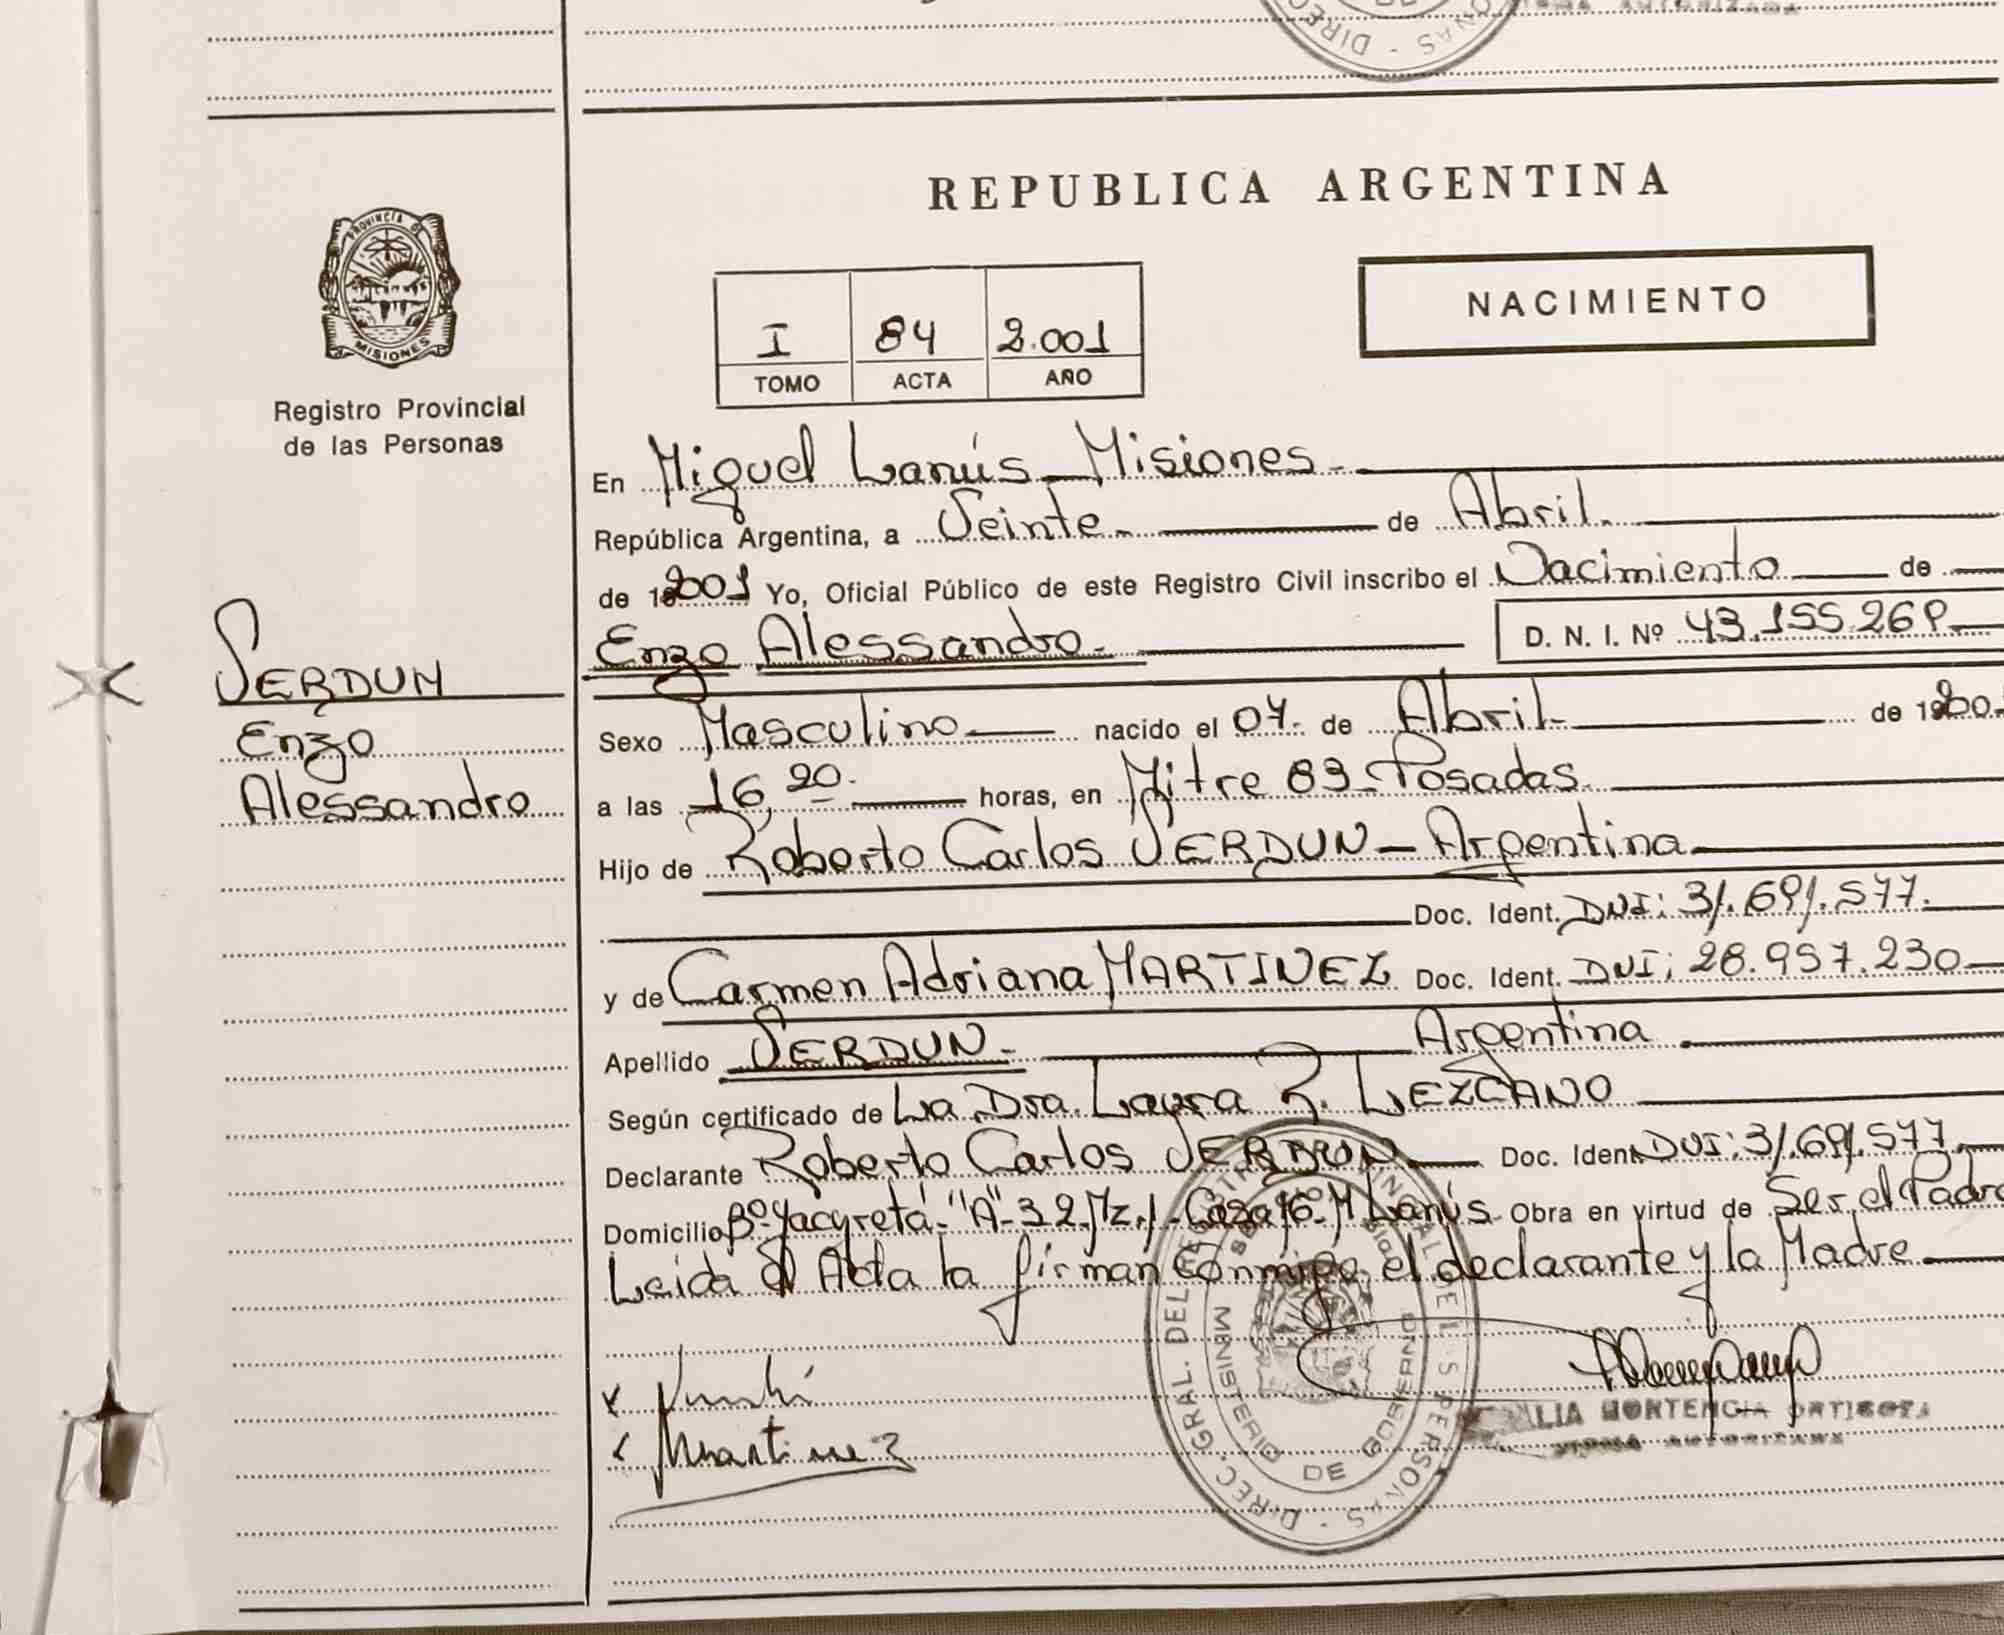 REPUBLICA ARGENTINA
PROVINCIA DE
MISIONES
Registro Provincial
de las Personas
NACIMIENTO
I 84 2.001
TOMO ACTA AÑO
En Miguel Lanús - Misiones -
República Argentina, a Veinte de Abril.
de 2001 Yo, Oficial Público de este Registro Civil inscribo el Nacimiento de
Enzo Alessandro. D. N. I. Nº 43.155.269
SERDUN
Enzo
Alessandro
Sexo Masculino nacido el 07. de Abril de 200
a las 16,20. horas, en Mitre 83 - Posadas.
Hijo de Roberto Carlos SERDUN - Argentina
Doc. Ident. DNI: 31.691.577.
y de Carmen Adriana MARTINEZ Doc. Ident. DNI: 28.957.230
Apellido SERDUN Argentina
Según certificado de La Dra. Laura R. LEZCANO
Declarante Roberto Carlos SERDUN Doc. Ident. DNI: 31.691.577
Domicilio Bº Yacyretá "A" 32 Mz. Casa 16 M Lanús Obra en virtud de Ser el Padre
Leida el Acta la firman Conmigo, el declarante y la Madre
Martinez
HORTENCIA
DIREC. GRAL. DEL PERSONAS
MINISTERIO DE GOBIERNO